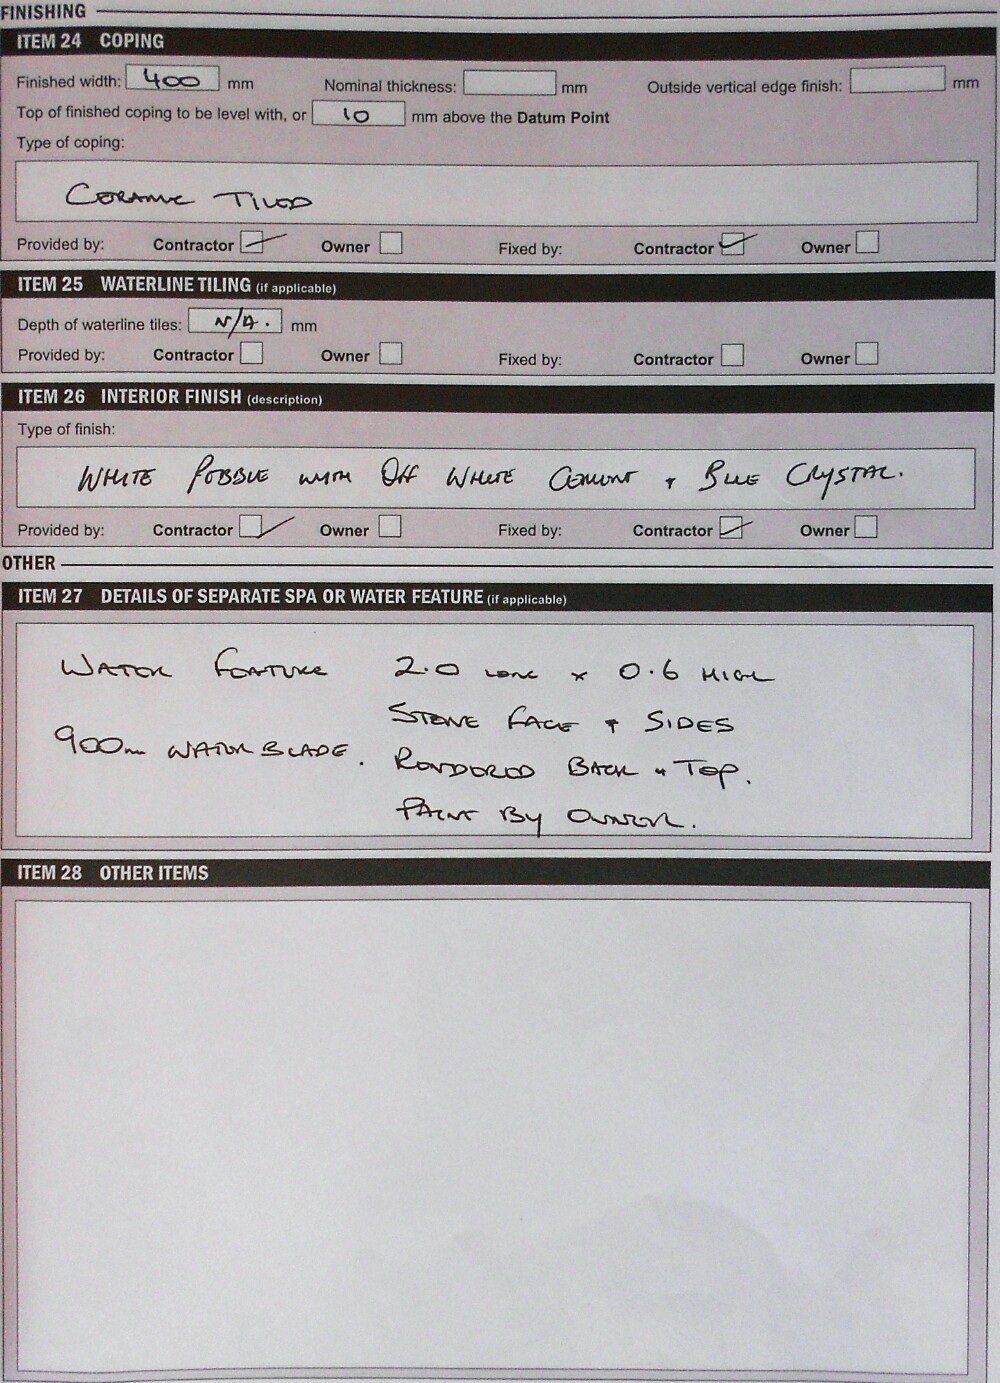 FINISHING
ITEM 24 COPING
Finished width: 400 mm Nominal thickness: mm Outside vertical edge finish: mm
Top of finished coping to be level with, or 10 mm above the Datum Point
Type of coping:
CERAMIC TILED
Provided by: Contractor Owner Fixed by: Contractor Owner
ITEM 25 WATERLINE TILING (if applicable)
Depth of waterline tiles: N/A. mm
Provided by: Contractor Owner Fixed by: Contractor Owner
ITEM 26 INTERIOR FINISH (description)
Type of finish:
WHITE PEBBLE WITH OFF WHITE CEMENT + BLUE CRYSTAL.
Provided by: Contractor Owner Fixed by: Contractor Owner
OTHER
ITEM 27 DETAILS OF SEPARATE SPA OR WATER FEATURE (if applicable)
WATER FEATURE 2.0 LONG x 0.6 HIGH
STONE FACE + SIDES
900mm WATER BLADE. RENDERED BACK + TOP.
PAINT BY OWNER.
ITEM 28 OTHER ITEMS